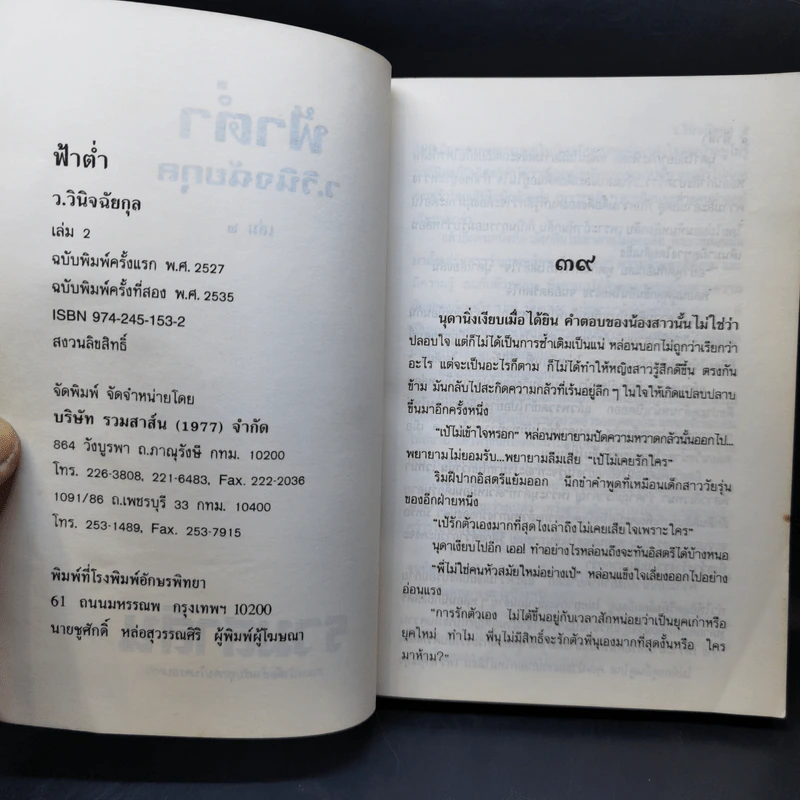 ฟ้าต่ำ
ว.วินิจฉัยกุล
เล่ม 2
ฉบับพิมพ์ครั้งแรก พ.ศ. 2527
ฉบับพิมพ์ครั้งที่สอง พ.ศ. 2535
ISBN 974-245-153-2
สงวนลิขสิทธิ์
จัดพิมพ์ จัดจำหน่ายโดย
บริษัท รวมสาส์น (1977) จำกัด
864 วังบูรพา ถ.ภาณุรังษี กทม. 10200
โทร. 226-3808, 221-6483, Fax. 222-2036
1091/86 ถ.เพชรบุรี 33 กทม. 10400
โทร. 253-1489, Fax. 253-7915
พิมพ์ที่โรงพิมพ์อักษรพิทยา
61 ถนนมหรรณพ กรุงเทพฯ 10200
นายชูศักดิ์ หล่อสุวรรณศิริ ผู้พิมพ์ผู้โฆษณา
๓๙
นุดานิ่งเงียบเมื่อได้ยิน คำตอบของน้องสาวนั้นไม่ใช่ว่า
ปลอบใจ แต่ก็ไม่ได้เป็นการซ้ำเติมเป็นแน่ หล่อนบอกไม่ถูกว่าเรียกว่า
อะไร แต่จะเป็นอะไรก็ตาม ก็ไม่ได้ทำให้หญิงสาวรู้สึกดีขึ้น ตรงกัน
ข้าม มันกลับไปสะกิดความกลัวที่เร้นอยู่ลึกๆ ในใจให้เกิดแปลบปลาบ
ขึ้นมาอีกครั้งหนึ่ง
"เป้ไม่เข้าใจหรอก" หล่อนพยายามปัดความหวาดกลัวนั้นออกไป...
พยายามไม่ยอมรับ...พยายามลืมเสีย "เป้ไม่เคยรักใคร"
ริมฝีปากอิสตรีแย้มออก นึกขำคำพูดที่เหมือนเด็กสาววัยรุ่น
ของอีกฝ่ายหนึ่ง
"เป้รักตัวเองมากที่สุดไงเล่าถึงไม่เคยเสียใจเพราะใคร"
นุดาเงียบไปอีก เออ! ทำอย่างไรหล่อนถึงจะทันอิสตรีได้บ้างหนอ
"พี่ไม่ใช่คนหัวสมัยใหม่อย่างเป้" หล่อนแข็งใจเลี่ยงออกไปอย่าง
อ่อนแรง
"การรักตัวเอง ไม่ได้ขึ้นอยู่กับเวลาสักหน่อยว่าเป็นยุคเก่าหรือ
ยุคใหม่ ทำไม พี่นุไม่มีสิทธิ์จะรักตัวพี่นุเองมากที่สุดงั้นหรือ ใคร
มาห้าม?"